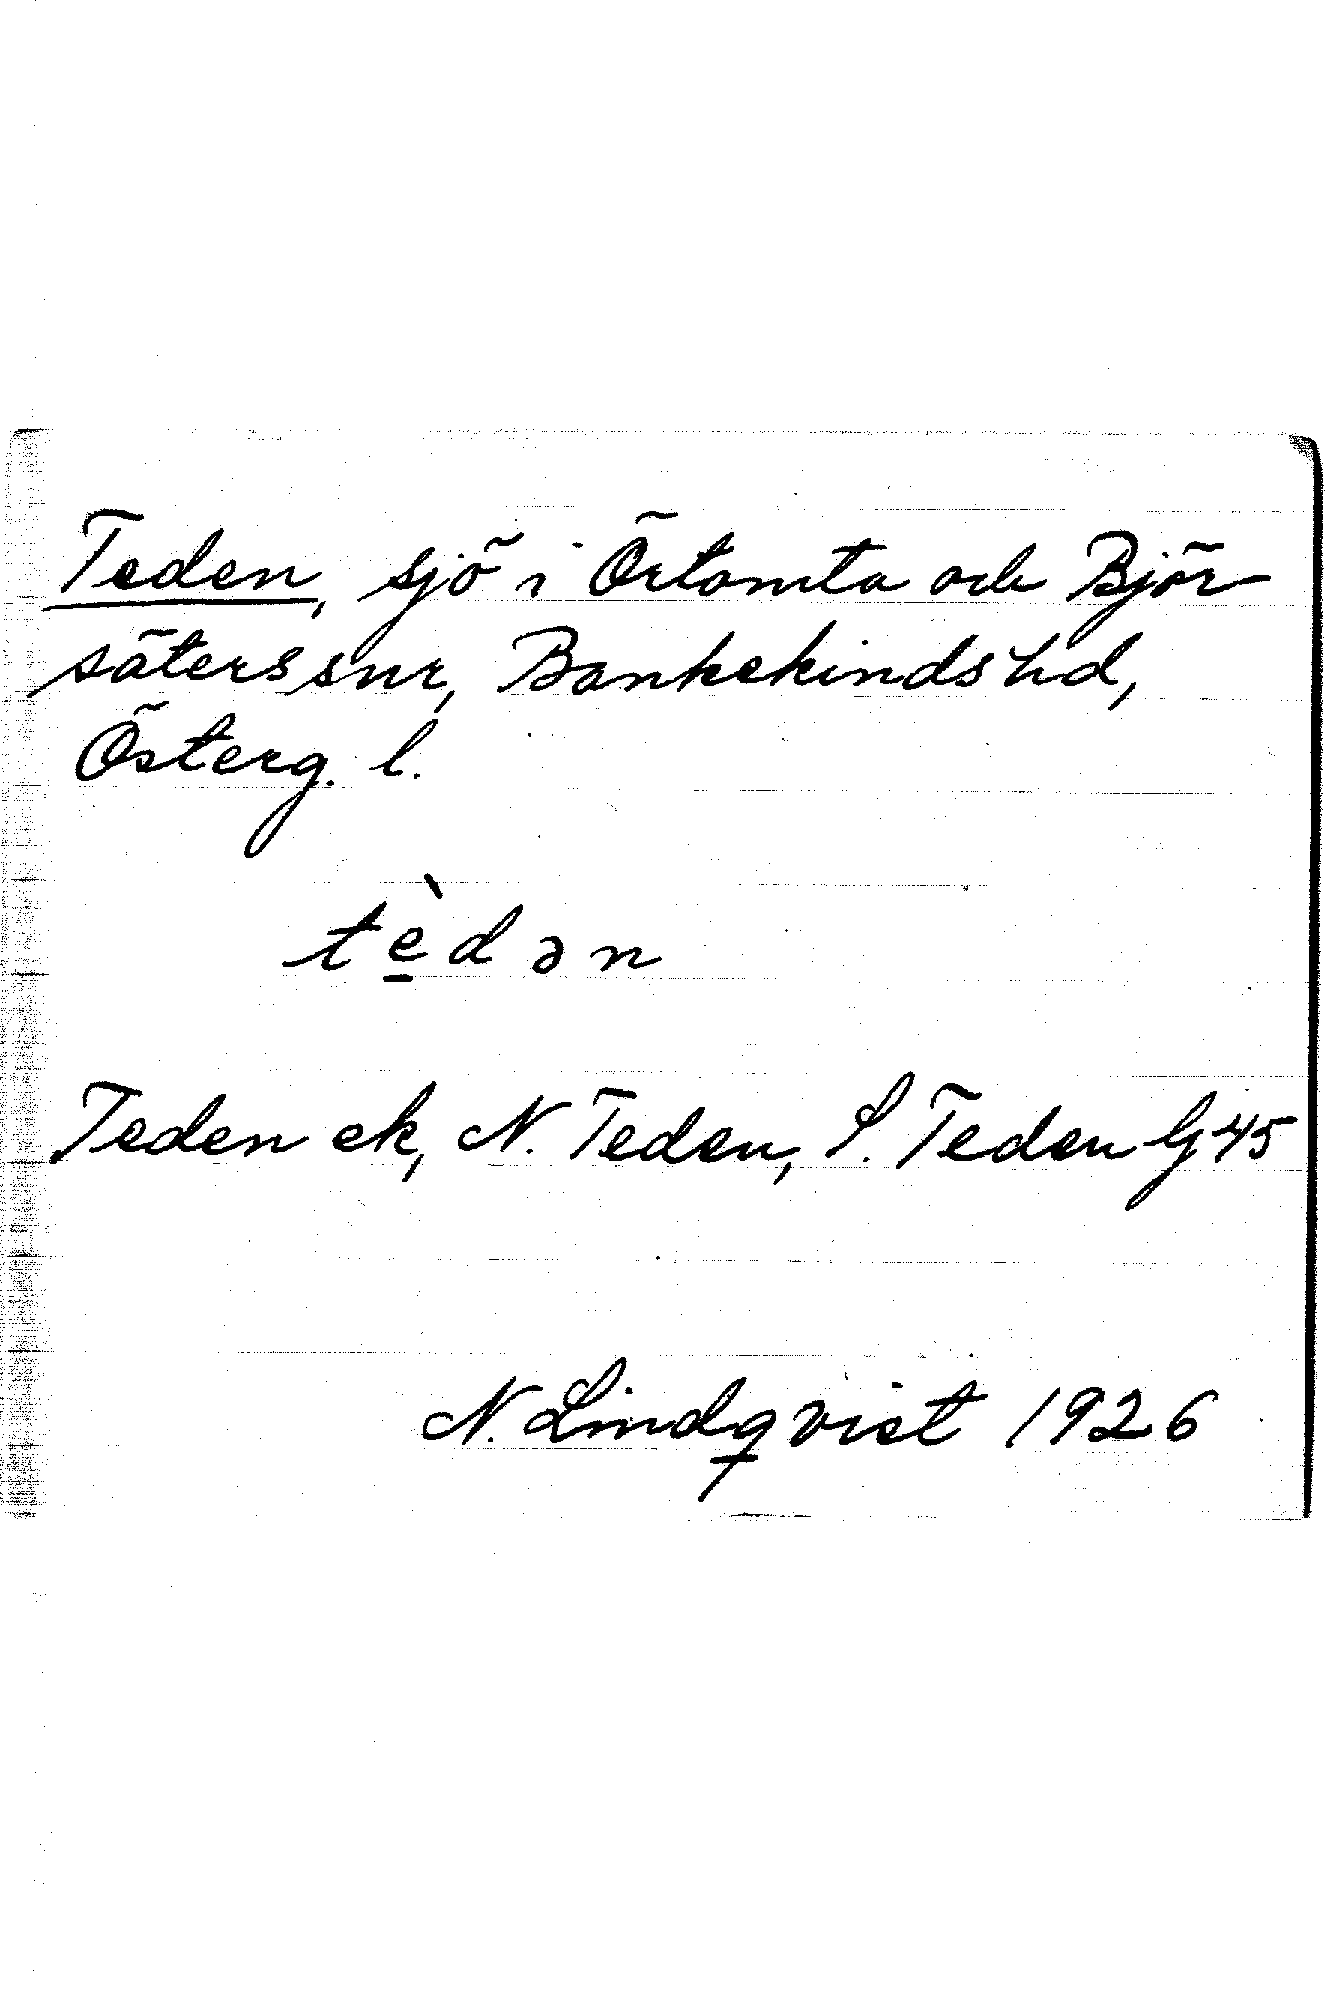 Teden, sjö i Örtomta och Björ-
säters snr, Bankekinds hd,
Österg. l.
tèdən
Teden ek, N. Teden, S. Teden G45
N. Lindqvist 1926